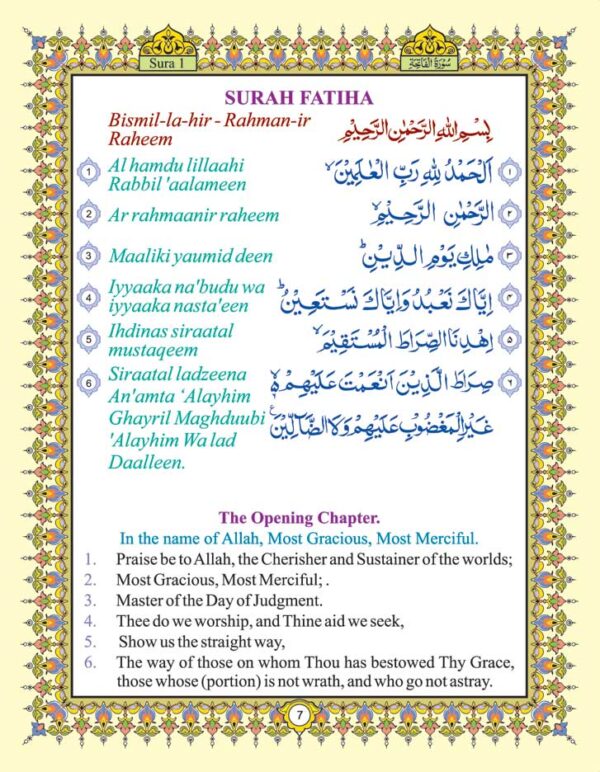 Sura 1
سُورَةُ الْفَاتِحَة
SURAH FATIHA
Bismil-la-hir - Rahman-ir
Raheem
بِسْمِ اللهِ الرَّحْمٰنِ الرَّحِيْمِ
1 Al hamdu lillaahi
Rabbil 'aalameen
اَلْحَمْدُ لِلّٰهِ رَبِّ الْعٰلَمِيْنَ ۙ ١
2 Ar rahmaanir raheem
الرَّحْمٰنِ الرَّحِيْمِ ۙ ٢
3 Maaliki yaumid deen
مٰلِكِ يَوْمِ الدِّيْنِ ؕ ٣
4 Iyyaaka na'budu wa
iyyaaka nasta'een
اِيَّاكَ نَعْبُدُ وَاِيَّاكَ نَسْتَعِيْنُ ؕ ۴
5 Ihdinas siraatal
mustaqeem
اِهْدِنَا الصِّرَاطَ الْمُسْتَقِيْمَ ۙ ۵
6 Siraatal ladzeena
An'amta ‘Alayhim
Ghayril Maghduubi
'Alayhim Wa lad
Daalleen.
صِرَاطَ الَّذِيْنَ اَنْعَمْتَ عَلَيْهِمْ ۙ ٦
غَيْرِ الْمَغْضُوْبِ عَلَيْهِمْ وَلَا الضَّآلِّيْنَ
The Opening Chapter.
In the name of Allah, Most Gracious, Most Merciful.
1. Praise be to Allah, the Cherisher and Sustainer of the worlds;
2. Most Gracious, Most Merciful; .
3. Master of the Day of Judgment.
4. Thee do we worship, and Thine aid we seek,
5. Show us the straight way,
6. The way of those on whom Thou has bestowed Thy Grace,
those whose (portion) is not wrath, and who go not astray.
7